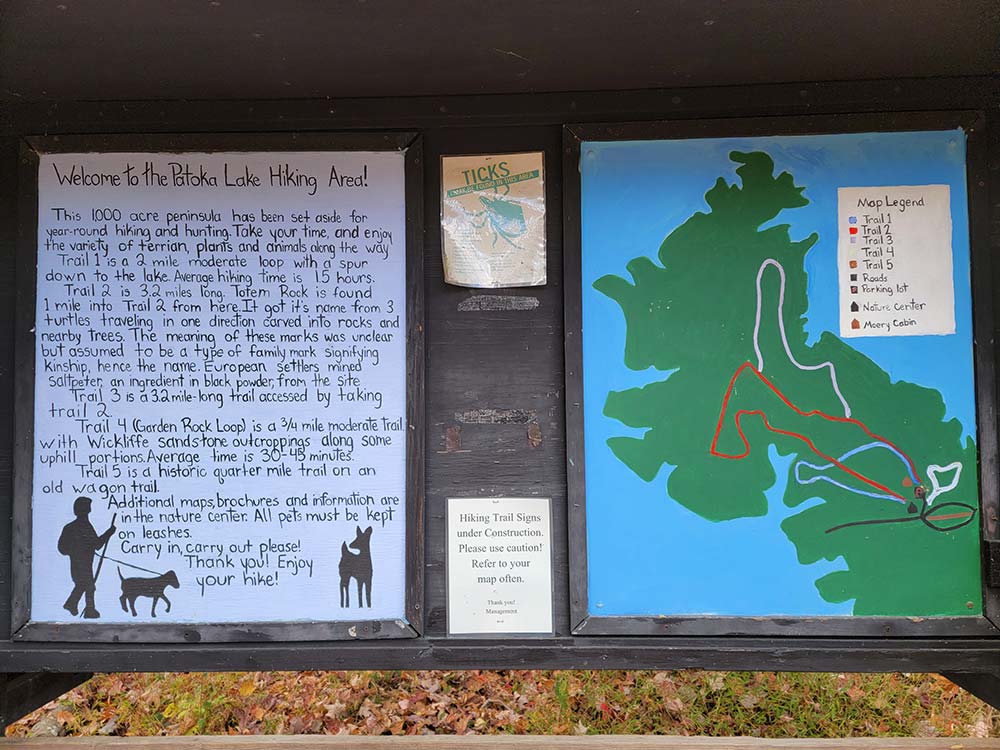 Welcome to the Patoka Lake Hiking Area!
This 1,000 acre peninsula has been set aside for
year-round hiking and hunting. Take your time, and enjoy
the variety of terrian, plants and animals along the way
Trail 1 is a 2 mile moderate loop with a spur
down to the lake. Average hiking time is 1.5 hours.
Trail 2 is 3.2 miles long. Totem Rock is found
1 mile into Trail 2 from here. It got it's name from 3
turtles traveling in one direction carved into rocks and
nearby trees. The meaning of these marks was unclear
but assumed to be a type of family mark signifying
kinship, hence the name. European settlers mined
saltpeter, an ingredient in black powder, from the site
Trail 3 is a 3.2 mile-long trail accessed by taking
trail 2.
Trail 4 (Garden Rock Loop) is a 3/4 mile moderate trail
with Wickliffe sandstone outcroppings along some
uphill portions. Average time is 30-45 minutes.
Trail 5 is a historic quarter mile trail on an
old wagon trail.
Additional maps, brochures and information are
in the nature center. All pets must be kept
on leashes.
Carry in, carry out please!
Thank you! Enjoy
your hike!
TICKS
CAN BE FOUND IN THIS AREA
Hiking Trail Signs
under Construction.
Please use caution!
Refer to your
map often.
Thank you!
Management
Map Legend
Trail 1
Trail 2
Trail 3
Trail 4
Trail 5
Roads
Parking lot
Nature Center
Moery Cabin